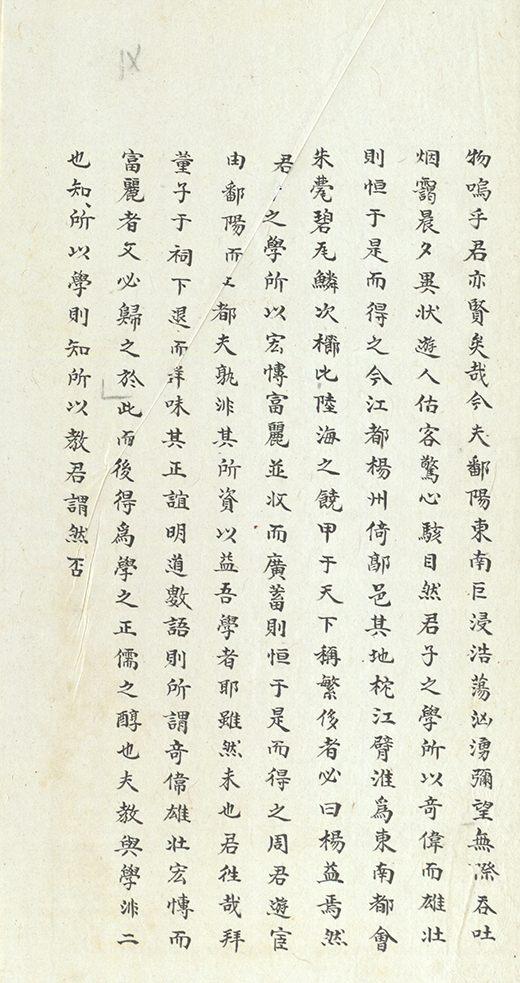 物嗚乎君亦賢矣哉今夫鄱陽東南巨浸浩蕩汹湧彌望無際吞吐
烟靄晨夕異狀遊人估客驚心駭目然君子之學所以奇偉而雄壯
則恒于是而得之今江都楊州倚郭邑其地枕江臂淮為東南都會
朱甍碧瓦鱗次櫛比陸海之饒甲于天下稱繁侈者必曰楊益焉然
君之學所以宏博富麗並收而廣蓄則恒于是而得之周君遊宦
由鄱陽而江都夫孰非其所資以益吾學者耶雖然未也君徃哉拜
董子于祠下退而詳味其正誼明道數語則所謂奇偉雄壯宏博而
富麗者又必歸之於此而後得為學之正儒之醇也夫教與學非二
也知所以學則知所以教君謂然否